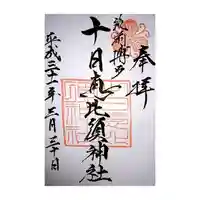 奉拝
筑前博多
十日恵比須神社
平成三十一年三月二十日